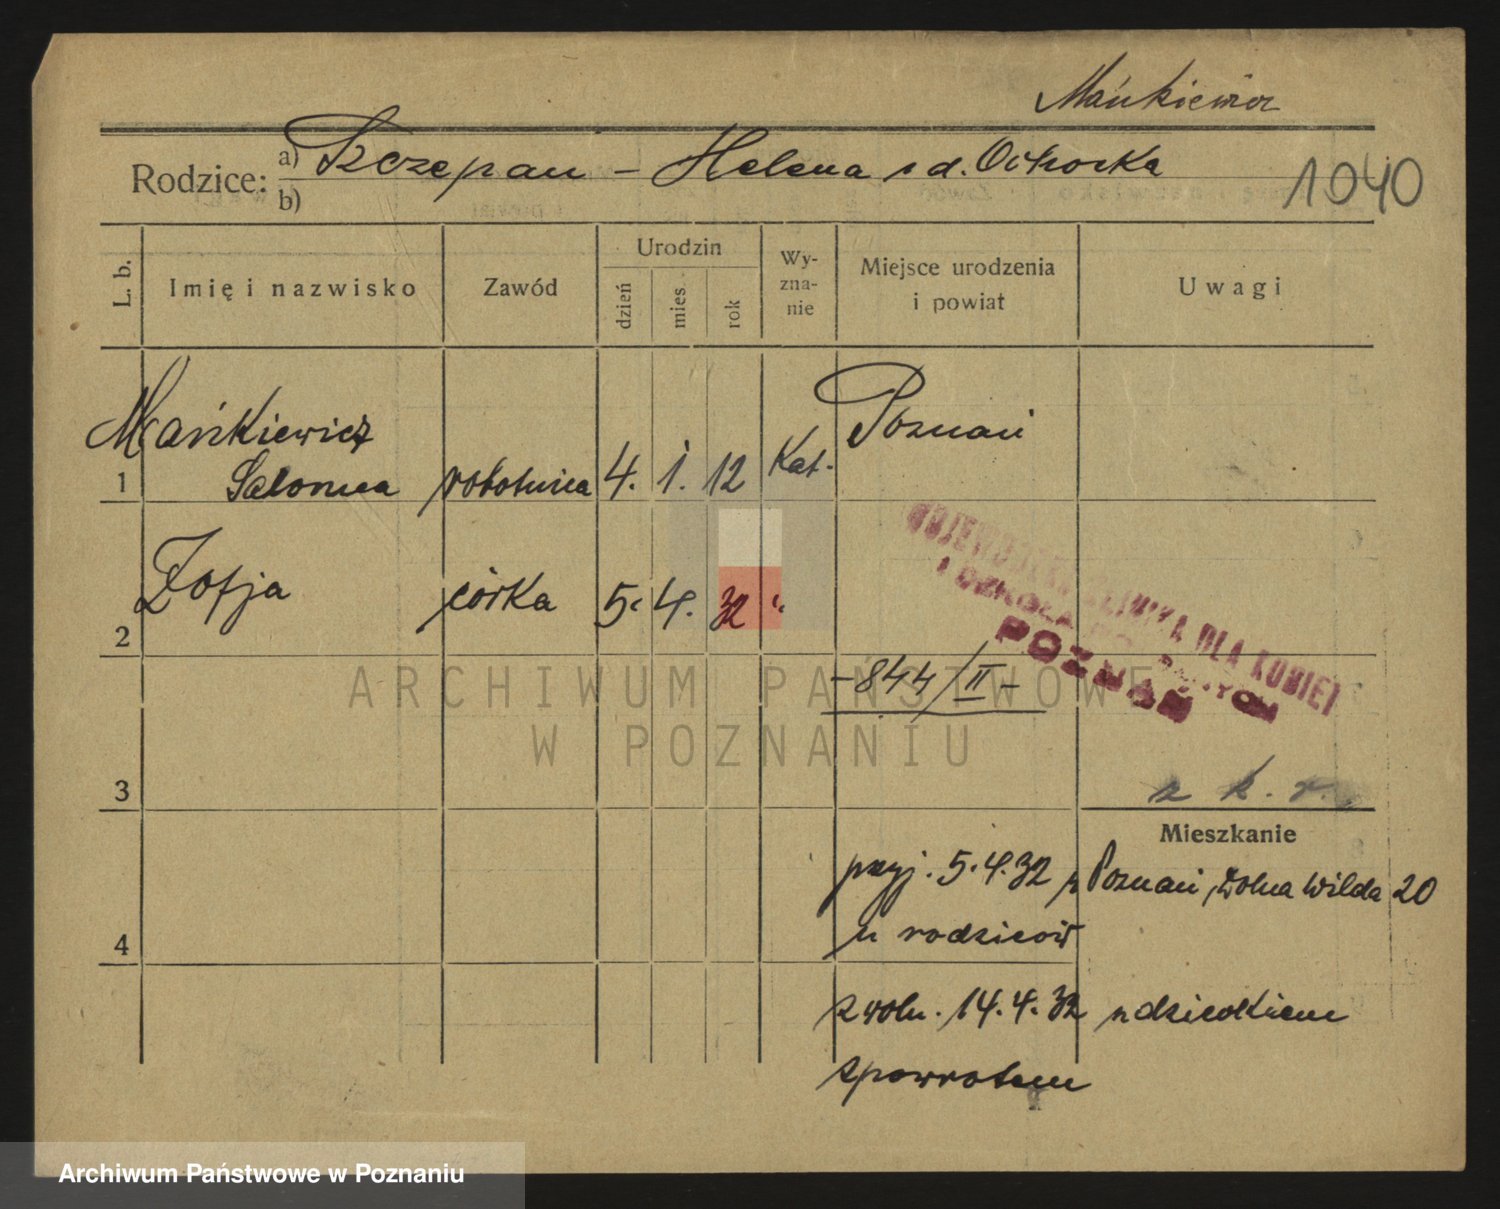 Mańkiewicz
Rodzice: a) Szczepan – Helena z d.
b)
1040
L. b.
Imię i nazwisko
Zawód
Urodzin
dzień
mies.
rok
Wy-
zna-
nie
Miejsce urodzenia
i powiat
Uwagi
Mańkiewicz
1 Salomea robotnica 4. 1. 12 Kat. Poznań
2 Zofja córka 5. 4. 32 "
WOJEWÓDZKA KLINIKA DLA KOBIET
I SZKOŁA POŁOŻNYCH
POZNAŃ
-844/II-
3
z k. r.
Mieszkanie
przyj. 5.4.32 z Poznań, Wilda 20
4 u rodziców
zwoln. 14.4.32 z dzieckiem
zpowrotem
ARCHIWUM PAŃSTWOWE
W POZNANIU
Archiwum Państwowe w Poznaniu